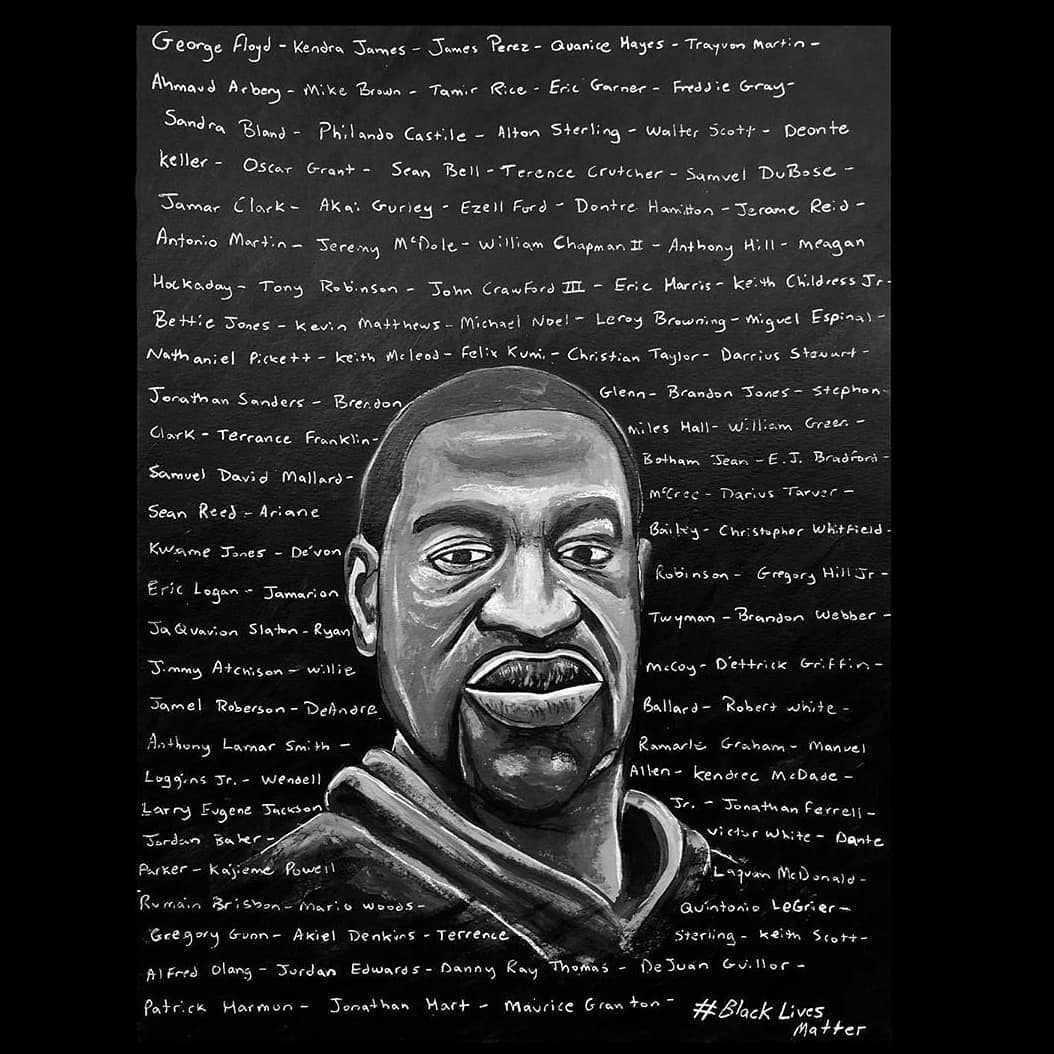 George Floyd - Kendra James - James Perez - Quanice Hayes - Trayvon Martin -
Ahmaud Arbery - Mike Brown - Tamir Rice - Eric Garner - Freddie Gray -
Sandra Bland - Philando Castile - Alton Sterling - Walter Scott - Deonte
Keller - Oscar Grant - Sean Bell - Terence Crutcher - Samuel DuBose -
Jamar Clark - Akai Gurley - Ezell Ford - Dontre Hamilton - Jerame Reid -
Antonio Martin - Jeremy McDole - William Chapman II - Anthony Hill - Meagan
Hockaday - Tony Robinson - John Crawford III - Eric Harris - Keith Childress Jr -
Bettie Jones - Kevin Matthews - Michael Noel - Leroy Browning - Miguel Espinal -
Nathaniel Pickett - Keith Mcleod - Felix Kumi - Christian Taylor - Darrius Stewart -
Jonathan Sanders - Brendon Glenn - Brandon Jones - Stephon
Clark - Terrance Franklin - Miles Hall - William Green -
Samuel David Mallard - Botham Jean - E.J. Bradford -
Sean Reed - Ariane McCree - Darius Tarver -
Kwame Jones - De'von Bailey - Christopher Whitfield -
Eric Logan - Jamarion Robinson - Gregory Hill Jr -
JaQuavion Slaton - Ryan Twyman - Brandon Webber -
Jimmy Atchison - Willie McCoy - D'ettrick Griffin -
Jamel Roberson - DeAndre Ballard - Robert White -
Anthony Lamar Smith - Ramarle Graham - Manuel
Loggins Jr. - Wendell Allen - Kendrec McDade -
Larry Eugene Jackson Jr. - Jonathan Ferrell -
Jordan Baker - Victor White - Dante
Parker - Kajieme Powell Laquan McDonald -
Rumain Brisbon - Mario Woods - Quintonio LeGrier -
Gregory Gunn - Akiel Denkins - Terrence Sterling - Keith Scott -
Alfred Olang - Jordan Edwards - Danny Ray Thomas - DeJuan Guillor -
Patrick Harmon - Jonathan Hart - Maurice Granton -
#Black Lives
Matter